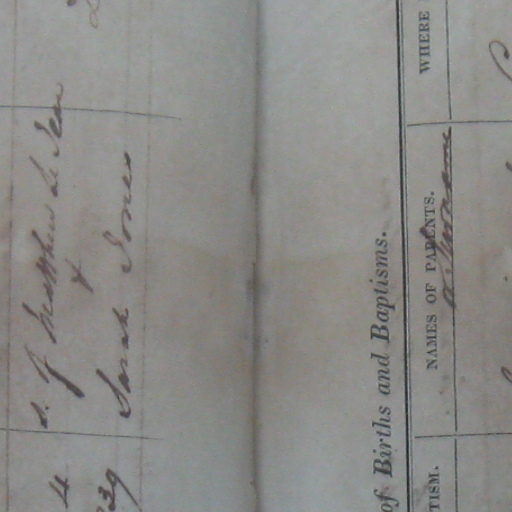 s. of Matthew Le Jean
4
&
39
Sarah Jones
of Births and Baptisms.
TISM.
NAMES OF PARENTS.
WHERE
or Surname